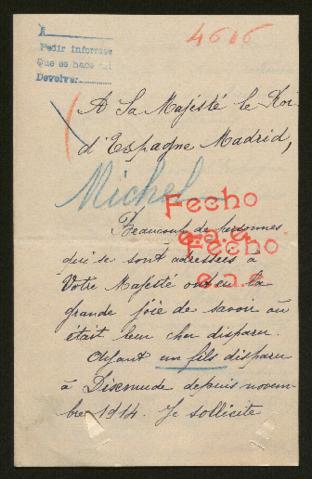 4616
A
Pedir informes
Que se hace
Devolver
A Sa Majésté le Roi
d'Espagne Madrid,
Michel
Fecho
Beaucoup de personnes
Fecho
qui se sont adressées à
Votre Majesté ont eu la
grande joie de savoir où
était leur cher disparu.
Ayant un fils disparu
à Dixmude depuis novem-
bre 1914. Je sollicite